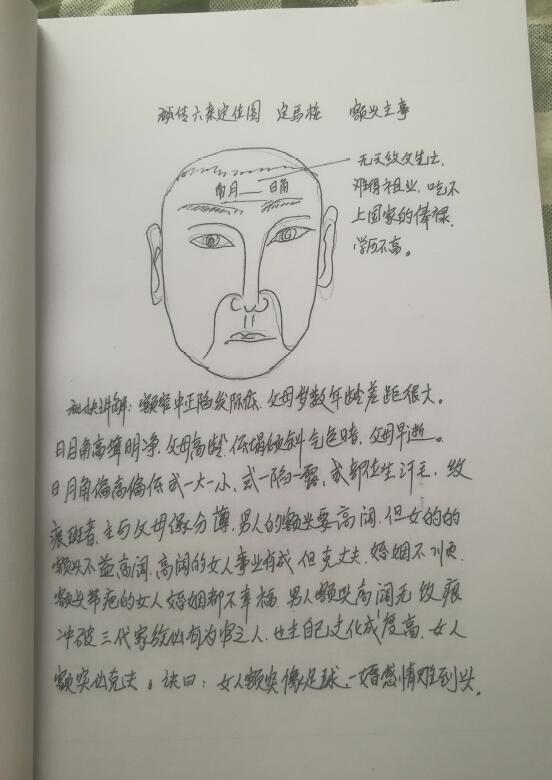 秘传六亲定位图 定马桩 额头主事
无天纹又生士,
难得祖业,吃不
上国家的俸禄,
学历不高。
角月 日角
秘诀讲解:额窄中正陷发际低,父母岁数年龄差距很大。
日月角高耸明净,父母高龄,低塌倾斜气色暗,父母早逝。
日月角偏高偏低或一大一小,或一陷一露,或部位生汗毛,纹
痕斑者,主与父母缘分薄,男人的额头要高阔,但女的的
额头不益高阔,高阔的女人事业有成但克丈夫,婚姻不顺,
额头带疤的女人婚姻都不幸福,男人额头高阔无纹痕
冲破三代家纹必有为官之人,也主自己文化成度高,女人
额突必克夫。诀曰:女人额突像足球,一婚感情难到头。